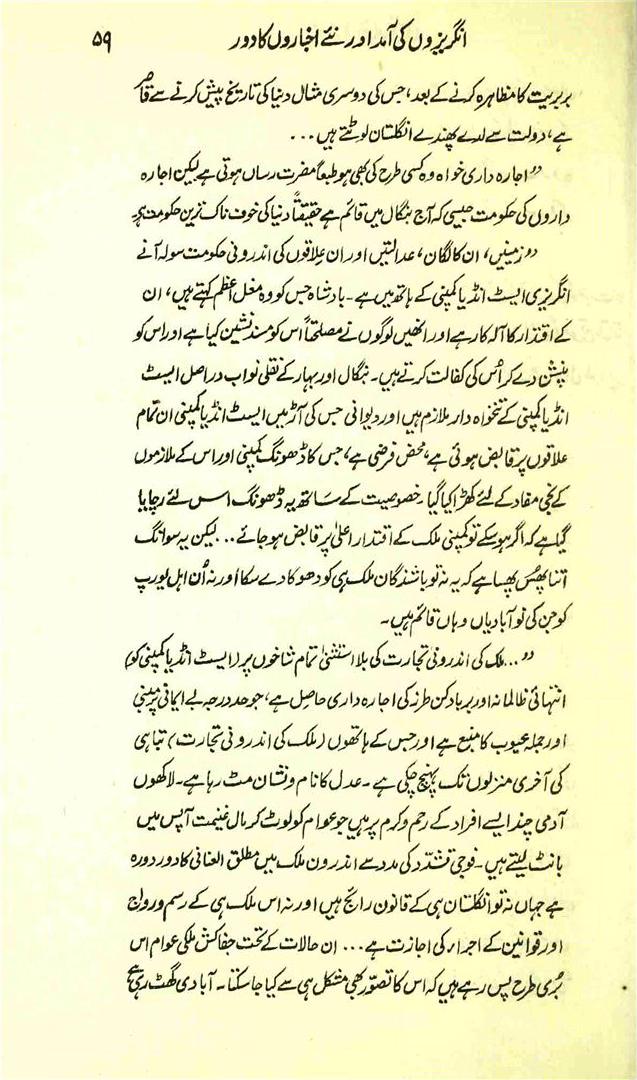 انگریزوں کی آمد اور نئے اخباروں کا دور ۵۹
بربریت کا مظاہرہ کرنے کے بعد، جس کی دوسری مثال دنیا کی تاریخ پیش کرنے سے قاصر
ہے، دولت سے لدے پھندے انگلستان لوٹتے ہیں ...
"اجارہ داری خواہ وہ کسی طرح کی بھی ہو طبعاً مضرت رساں ہوتی ہے لیکن اجارہ
داروں کی حکومت جیسی کہ آج بنگال میں قائم ہے حقیقتاً دنیا کی خوف ناک ترین حکومت ہے۔
"زمینیں، ان کا لگان، عدالتیں اور ان علاقوں کی اندرونی حکومت سولہ آنے
انگریزی ایسٹ انڈیا کمپنی کے ہاتھ میں ہے۔ بادشاہ جس کو وہ مغل اعظم کہتے ہیں، ان
کے اقتدار کا آلہ کار ہے اور انھیں لوگوں نے مصلحتاً اس کو مسند نشین کیا ہے اور اس کو
پنشن دے کر اُس کی کفالت کرتے ہیں۔ بنگال اور بہار کے نقلی نواب دراصل ایسٹ
انڈیا کمپنی کے تنخواہ دار ملازم ہیں اور دیوانی جس کی آڑ میں ایسٹ انڈیا کمپنی ان تمام
علاقوں پر قابض ہوئی ہے، محض فرضی ہے، جس کا ڈھونگ کمپنی اور اس کے ملازموں
کے نجی مفاد کے لئے کھڑا کیا گیا۔ خصوصیت کے ساتھ یہ ڈھونگ اس لئے رچایا
گیا ہے کہ اگر ہو سکے تو کمپنی ملک کے اقتدار اعلیٰ پر قابض ہو جائے ... لیکن یہ سوانگ
اتنا پھُس پھسا ہے کہ یہ نہ تو باشندگان ملک ہی کو دھوکا دے سکا اور نہ اُن اہل یورپ
کو جن کی نو آبادیاں وہاں قائم ہیں۔
"... ملک کی اندرونی تجارت کی بلا استثنیٰ تمام شاخوں پر (ایسٹ انڈیا کمپنی کو)
انتہائی ظالمانہ اور برباد کن طرز کی اجارہ داری حاصل ہے، جو حد درجہ بے ایمانی پر مبنی
اور جملہ عیوب کا منبع ہے اور جس کے ہاتھوں (ملک کی اندرونی تجارت) تباہی
کی آخری منزلوں تک پہنچ چکی ہے۔ عدل کا نام و نشان مٹ رہا ہے۔ لاکھوں
آدمی چند ایسے افراد کے رحم و کرم پر ہیں جو عوام کو لوٹ کر مال غنیمت آپس میں
بانٹ لیتے ہیں۔ فوجی تشدّد کی مدد سے اندرون ملک میں مطلق العنانی کا دور دورہ
ہے جہاں نہ تو انگلستان ہی کے قانون رائج ہیں اور نہ اس ملک ہی کے رسم و رواج
اور قوانین کے اجراء کی اجازت ہے ... ان حالات کے تحت جفاکش ملکی عوام اس
بُری طرح پس رہے ہیں کہ اس کا تصوّر بھی مشکل ہی سے کیا جا سکتا۔ آبادی گھٹ رہی ہے